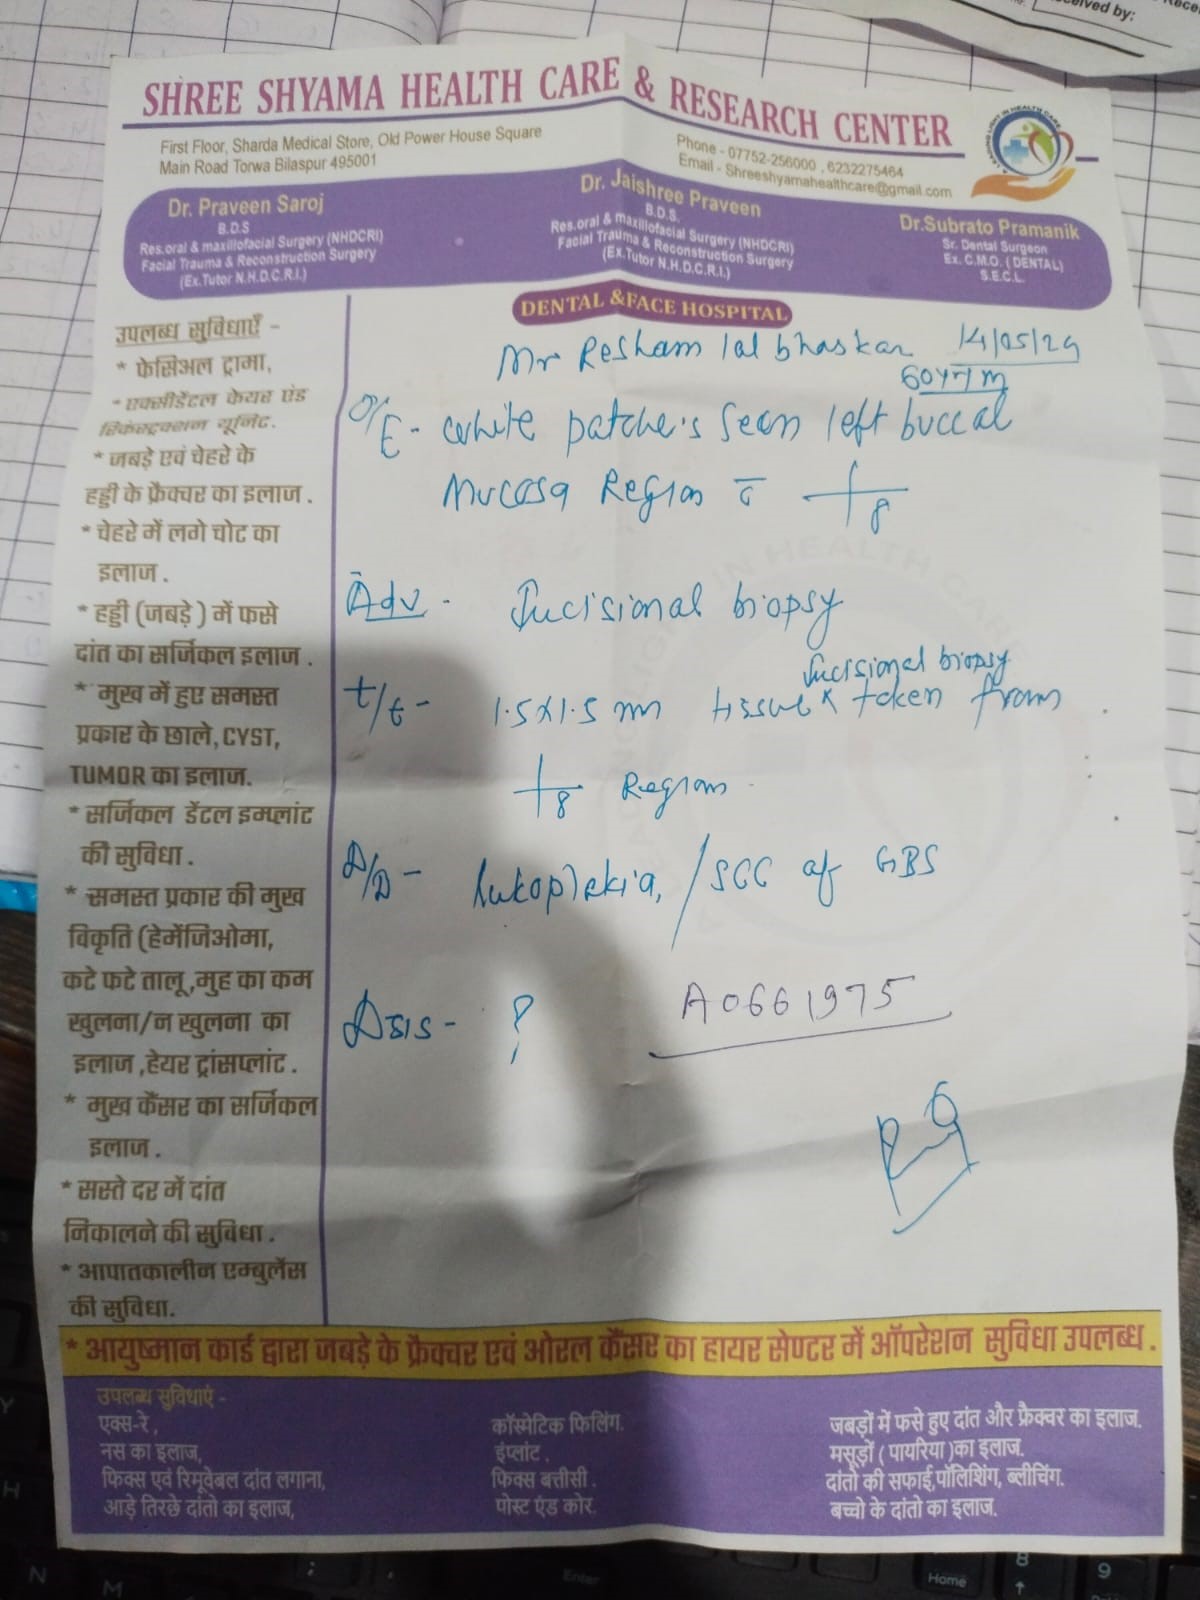 ceived by:
SHREE SHYAMA HEALTH CARE & RESEARCH CENTER
First Floor, Sharda Medical Store, Old Power House Square
Main Road Torwa Bilaspur 495001
Phone - 07752-256000 , 6232275464
Email - Shreeshyamahealthcare@gmail.com
Dr. Praveen Saroj
B.D.S
Res.oral & maxillofacial Surgery (NHDCRI)
Facial Trauma & Reconstruction Surgery
(Ex.Tutor N.H.D.C.R.I.)
Dr. Jaishree Praveen
B.D.S.
Res.oral & maxillofacial Surgery (NHDCRI)
Facial Trauma & Reconstruction Surgery
(Ex.Tutor N.H.D.C.R.I.)
Dr.Subrato Pramanik
Sr. Dental Surgeon
Ex. C.M.O. ( DENTAL)
S.E.C.L.
DENTAL &FACE HOSPITAL
उपलब्ध सुविधाएँ -
* फेसिअल ट्रामा,
* एक्सीडेंटल केयर एंड
रिकंस्ट्रक्शन यूनिट.
* जबड़े एवं चेहरे के
हड्डी के फ्रैक्चर का इलाज .
* चेहरे में लगे चोट का
इलाज .
* हड्डी (जबड़े ) में फसे
दांत का सर्जिकल इलाज .
* मुख में हुए समस्त
प्रकार के छाले, CYST,
TUMOR का इलाज.
* सर्जिकल डेंटल इम्प्लांट
की सुविधा .
* समस्त प्रकार की मुख
विकृति (हेमेंजिओमा,
कटे फटे तालू ,मुह का कम
खुलना/न खुलना का
इलाज ,हेयर ट्रांसप्लांट .
* मुख कैंसर का सर्जिकल
इलाज .
* सस्ते दर में दांत
निकालने की सुविधा .
* आपातकालीन एम्बुलेंस
की सुविधा.
Mr Resham lal bhaskar 14/05/24
60yrs/m
O/E - White patche's Seen left buccal
Mucosa Region c 8
Adv - Incisional biopsy
Incisional biopsy
t/t - 1.5x1.5 mm tissue x taken from
8 Region
D/D - lukoplakia, / SCC of GBS
?
A0661975
* आयुष्मान कार्ड द्वारा जबड़े के फ्रैक्चर एवं ओरल कैंसर का हायर सेण्टर में ऑपरेशन सुविधा उपलब्ध .
उपलब्ध सुविधाएं -
एक्स-रे ,
नस का इलाज,
फिक्स एवं रिमूवेबल दांत लगाना,
आड़े तिरछे दांतो का इलाज,
कॉस्मेटिक फिलिंग.
इंप्लांट .
फिक्स बत्तीसी .
पोस्ट एंड कोर.
जबड़ों में फसे हुए दांत और फ्रैक्चर का इलाज.
मसूड़ों ( पायरिया )का इलाज.
दांतो की सफाई,पॉलिशिंग, ब्लीचिंग.
बच्चो के दांतो का इलाज.
Enter
Home
8
9
Y
H
N
M